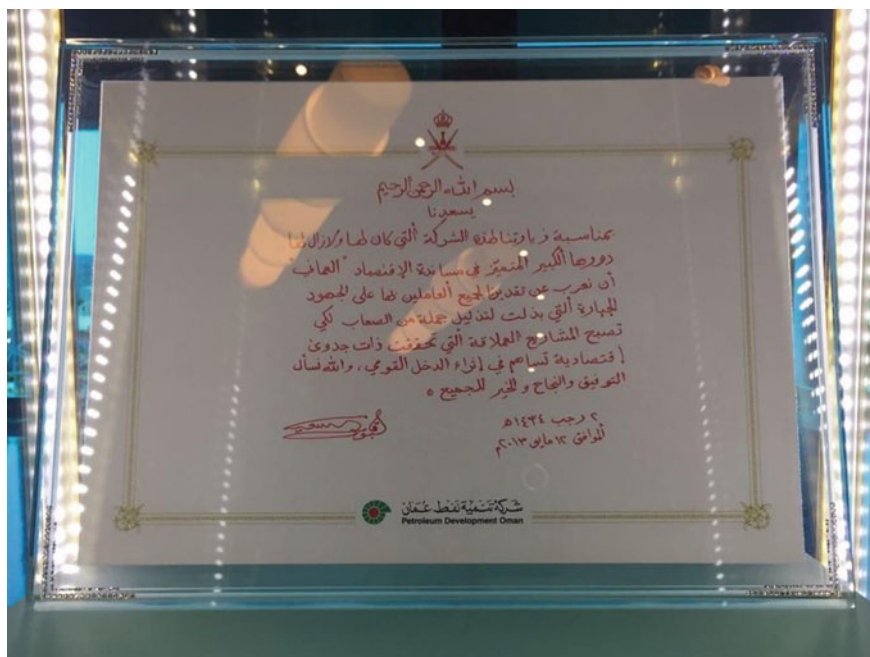 بسم الله الرحمن الرحيم
يسعدنا
بمناسبة زيارتنا لهذه الشركة التي كان لها ولازال لها
دورها الكبير المتميز في مساندة الإقتصاد "العماني"
أن نعرب عن تقديرنا لجميع العاملين بها على الجهود
الجبارة التي بذلت لتذليل جملة من الصعاب لكي
تصبح المشاريع العملاقة التي تحققت ذات جدوى
إقتصادية تساهم في إثراء الدخل القومي، والله نسأل
التوفيق والنجاح والخير للجميع ه
٢ رجب ١٤٣٤ه
الموافق ١٢ مايو ٢٠١٣م
قابوس بن سعيد
شركة تنمية نفط عمان
Petroleum Development Oman